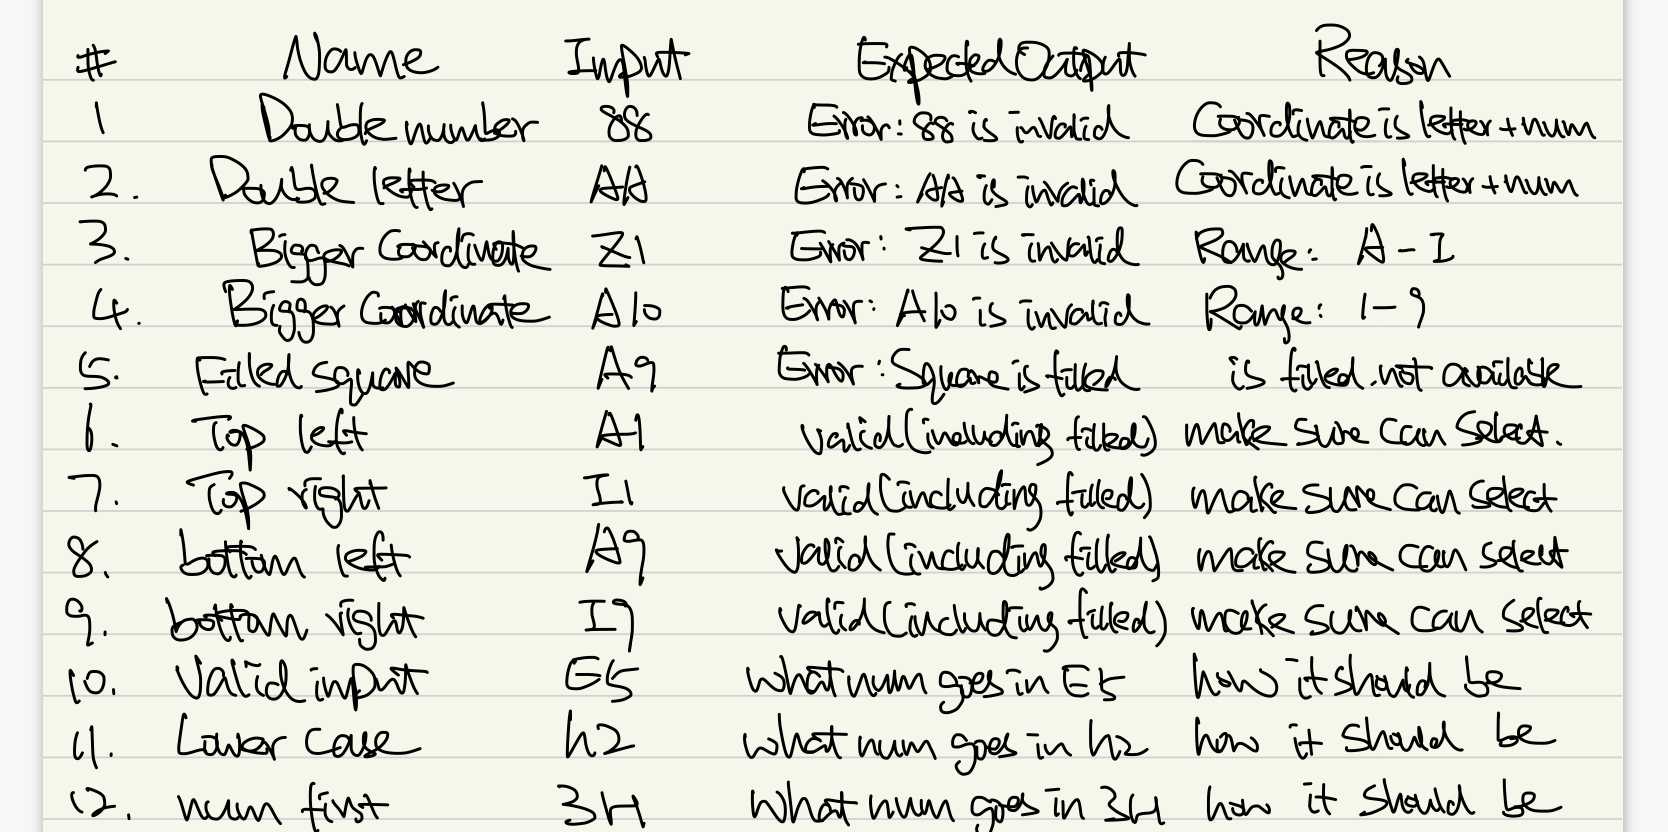 # Name Input Expected Output Reason
1 Double number 88 Error: 88 is invalid Coordinate is letter+num
2. Double letter AA Error: AA is invalid Coordinate is letter+num
3. Bigger Coordinate Z1 Error: Z1 is invalid Range: A-I
4. Bigger Coordinate A10 Error: A10 is invalid Range: 1-9
5. Filled square A9 Error: Square is filled is filled.not available
6. Top left A1 valid(including filled) make sure can select.
7. Top right I1 valid(including filled) make sure can select
8. bottom left A9 valid(including filled) make sure can select
9. bottom right I9 valid(including filled) make sure can select
10. Valid input E5 what num goes in E5 how it should be
11. Lower case h2 what num goes in h2 how it should be
12. num first 3H what num goes in 3H how it should be